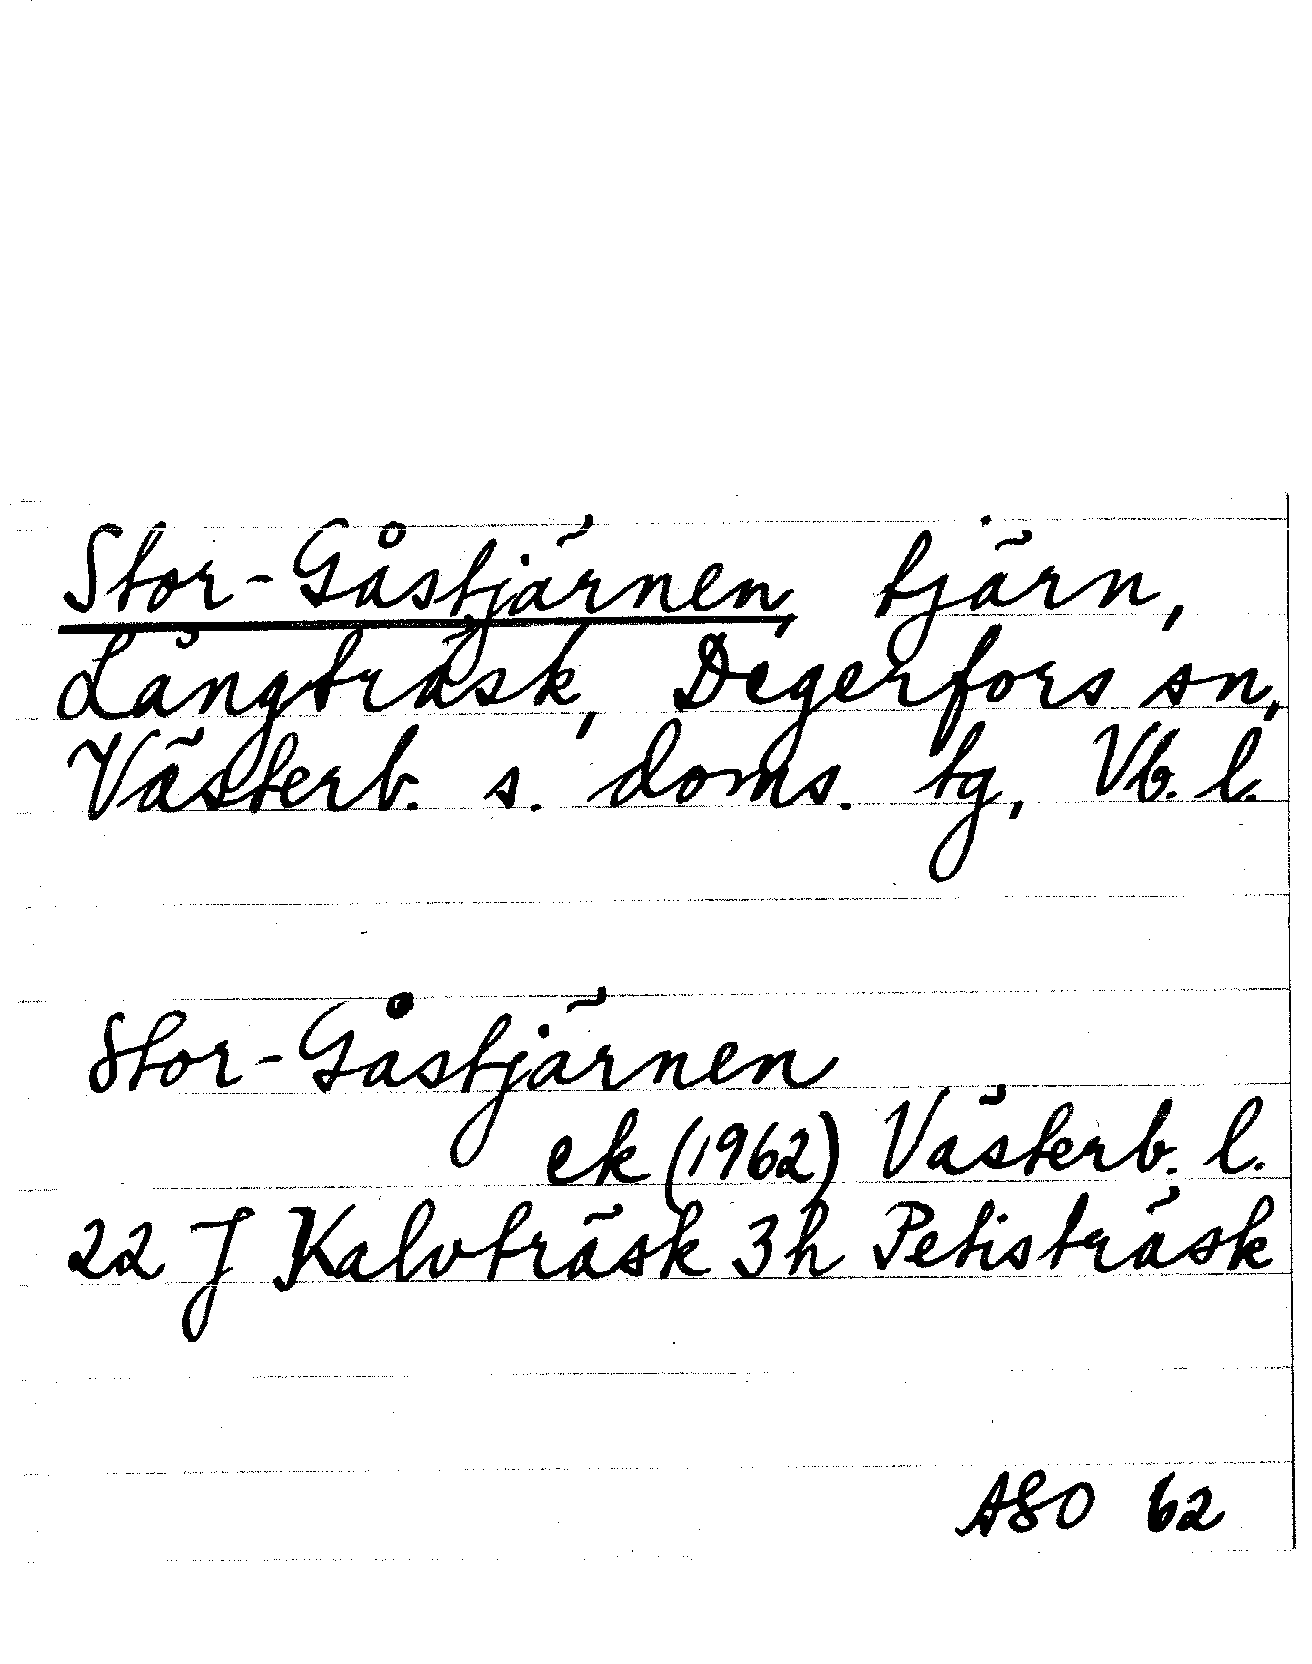 Stor-Gåstjärnen, tjärn,
Långträsk, Degerfors sn,
Västerb. s. doms. tg, Vb. l.
Stor-Gåstjärnen
ek (1962) Västerb. l.
22 J Kalvträsk 3h Petisträsk
ASO 62